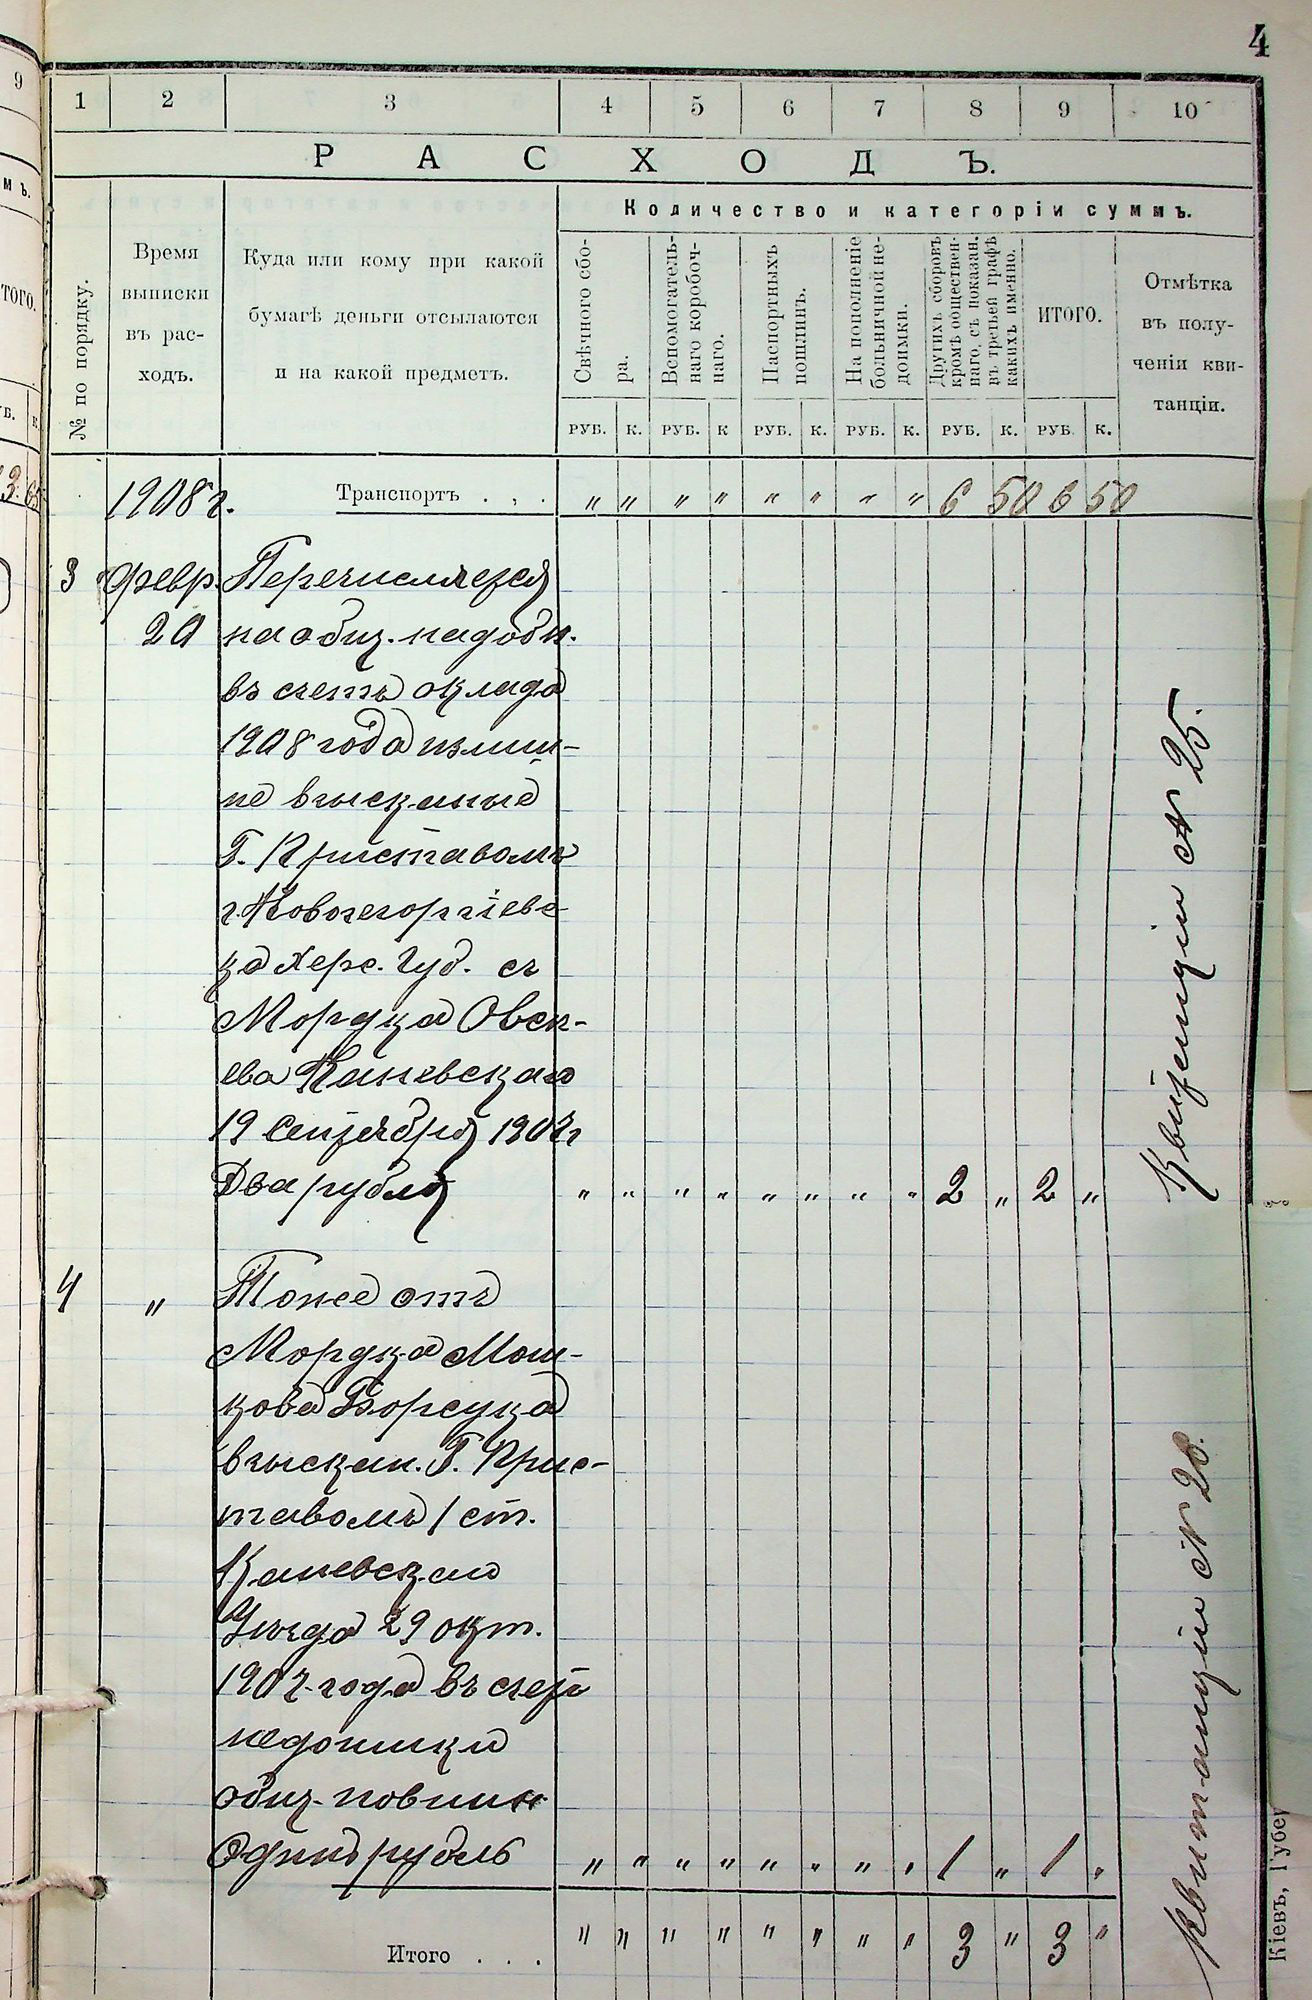 4
1 2 3 4 5 6 7 8 9 10
РАСХОДЪ.
Количество и категоріи суммъ.
№ по порядку.
Время
выписки
въ рас-
ходъ.
Куда или кому при какой
бумагѣ деньги отсылаются
и на какой предметъ.
Свѣчного сбо-
ра.
Вспомогатель-
наго коробоч-
наго.
Паспортныхъ
пошлинъ.
На пополненіе
больничной не-
доимки.
Другихъ сборовъ
кромѣ обществен-
наго, съ показан.
въ третьей графѣ
какихъ именно.
ИТОГО.
Отмѣтка
въ полу-
ченіи кви-
танціи.
РУБ. К. РУБ. К РУБ. К. РУБ. К. РУБ. К. РУБ. К.
1908 г. Транспортъ . . . " " " " " " " " 6 50 6 50
3 Февр. Перечисляется
20 на общ. надобн.
въ счетъ оклада
1908 года излиш-
не взысканые
Г. Приставомъ
г. Новогеоргіевс
ка Херс. Губ. съ
Мордка Овсѣ-
ева Каневскаго
19 Сентября 1907 г
Два рубля " " " " " " " " 2 " 2 "
Квитанціи № 25.
4 " Тоже отъ
Мордка Мош-
кова Борсука
взыскан. Г. Прис-
тавомъ 1 ст.
Каневскаго
Уѣзда 29 окт.
1907 года въ счетъ
недоимки
общ. повинн
Одинъ рубль " " " " " " " " 1 " 1 "
Квитанціи № 26.
Итого . . . " " " " " " " " 3 " 3 "
Кіевъ, Губер
9
мъ.
того.